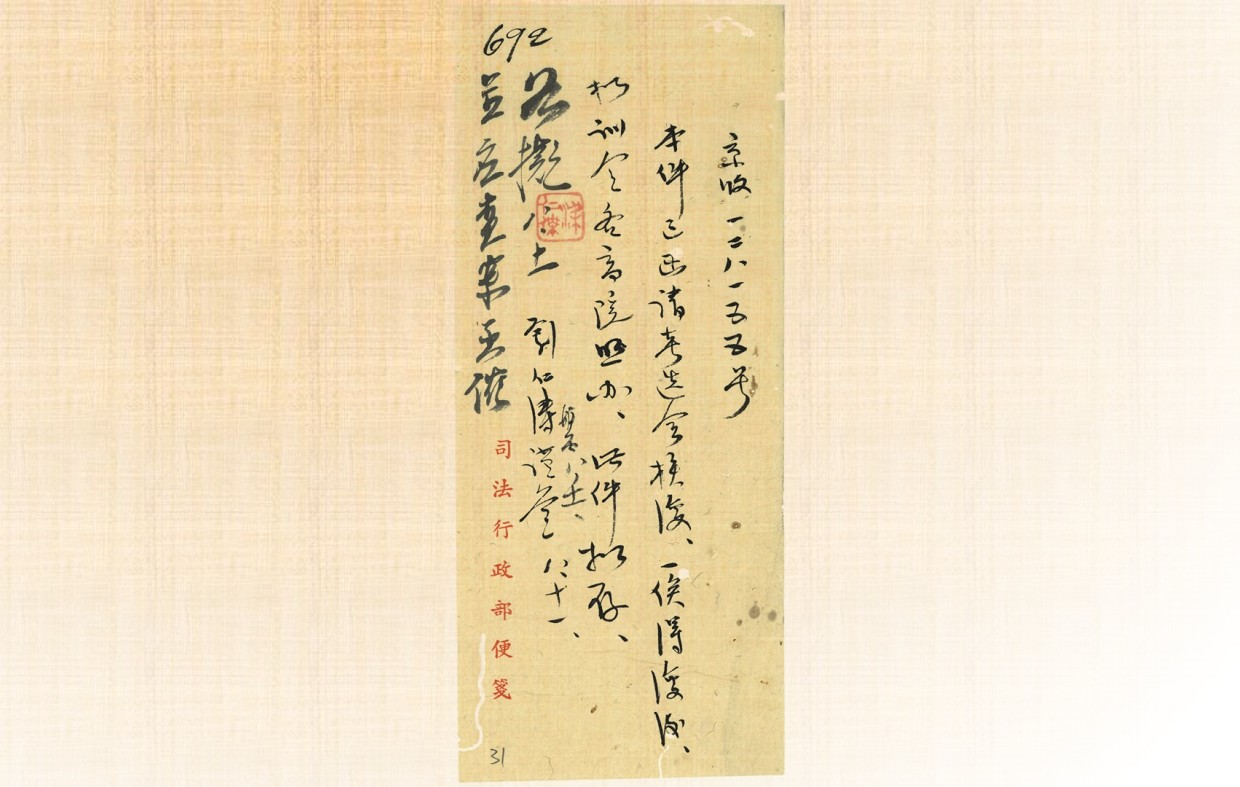 京收一二八一五五号
本件已函請考選会核復、一俟得復後、
擬訓令各高院照办、此件拟存、
劉仁傳謹簽 八、十一、
如擬 八、十一
並应查案函催
司法行政部便箋
692
31